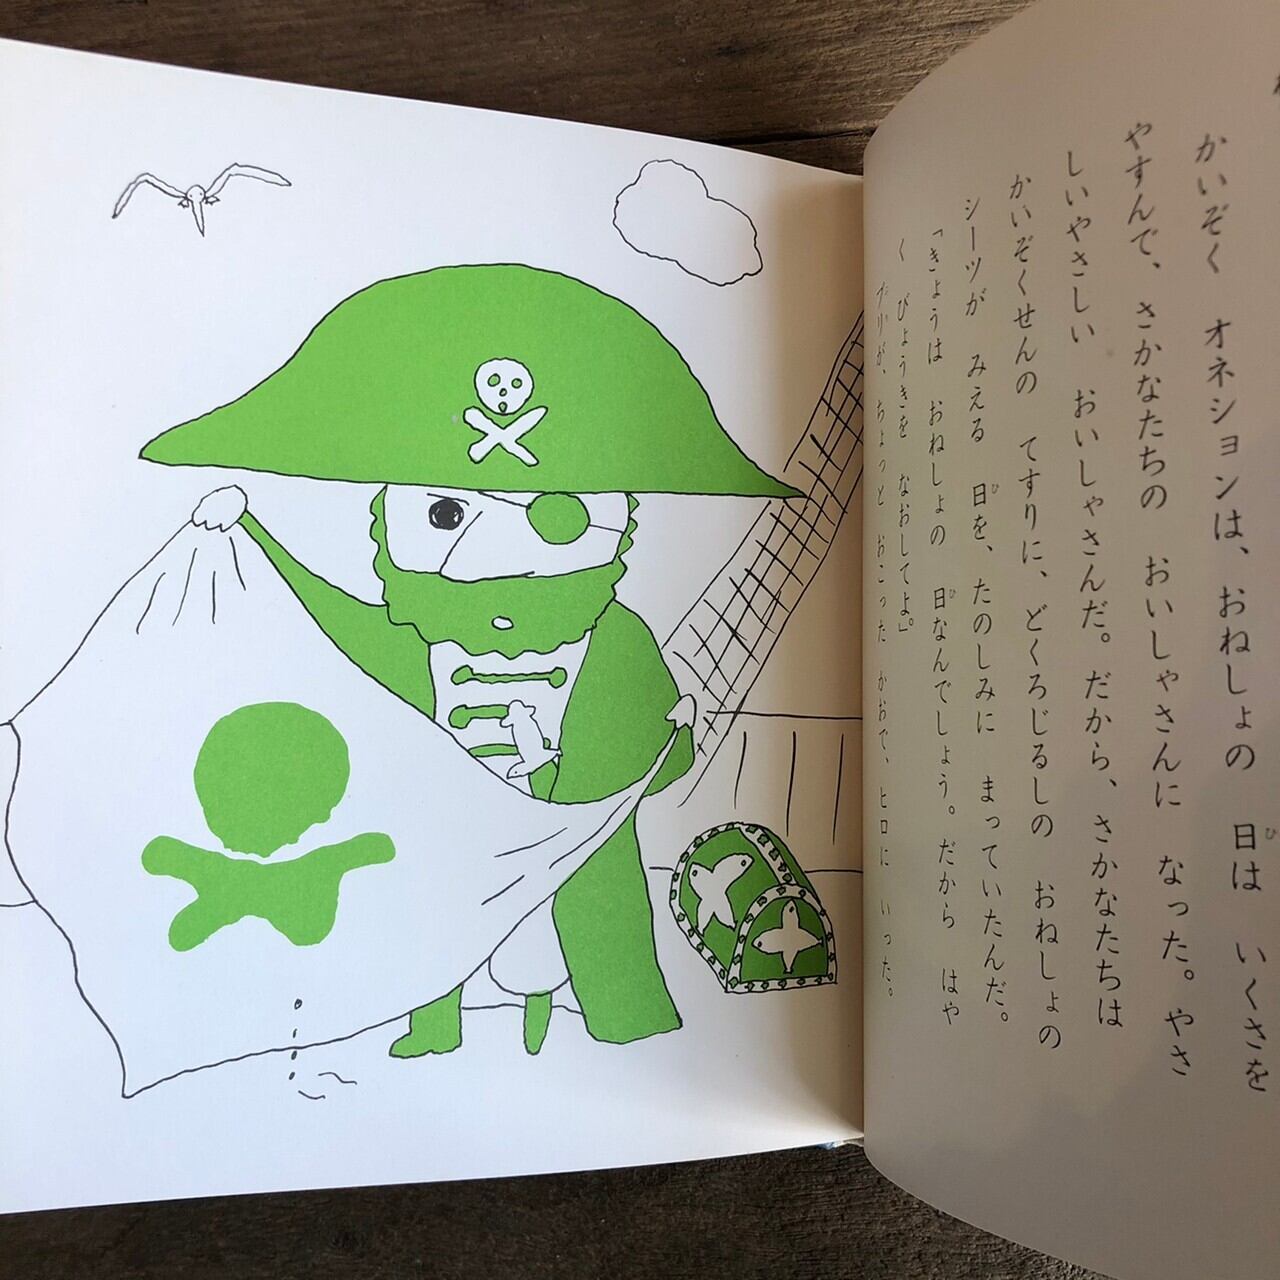 かいぞく オネションは、おねしょの 日は いくさを
やすんで、さかなたちの おいしゃさんに なった。やさ
しいやさしい おいしゃさんだ。だから、さかなたちは
かいぞくせんの てすりに、どくろじるしの おねしょの
シーツが みえる 日を、たのしみに まっていたんだ。
「きょうは おねしょの 日なんでしょう。だから はや
く びょうきを なおしてよ。」
ブリが、ちょっと おこった かおで、ヒロに いった。